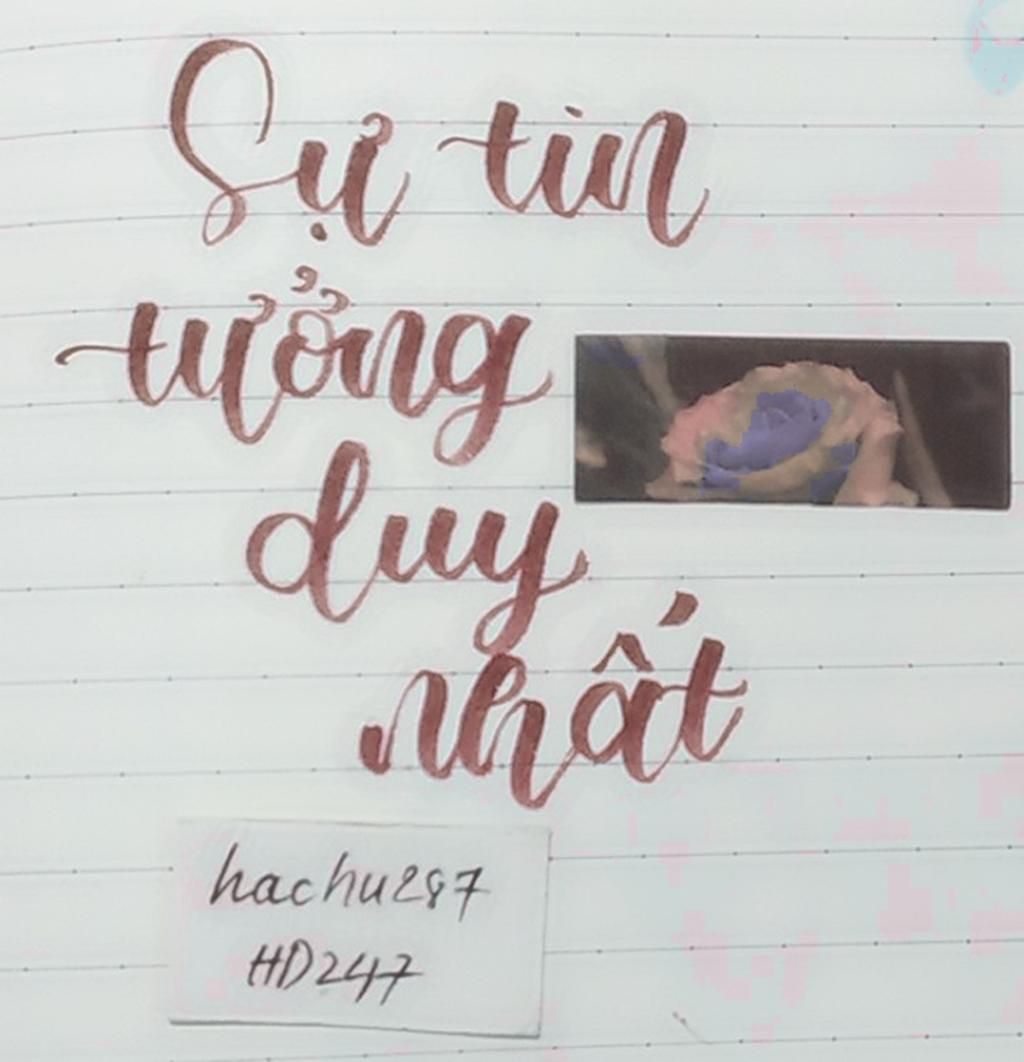 Sự tin
tưởng
duy
nhất
hachu287
HD247